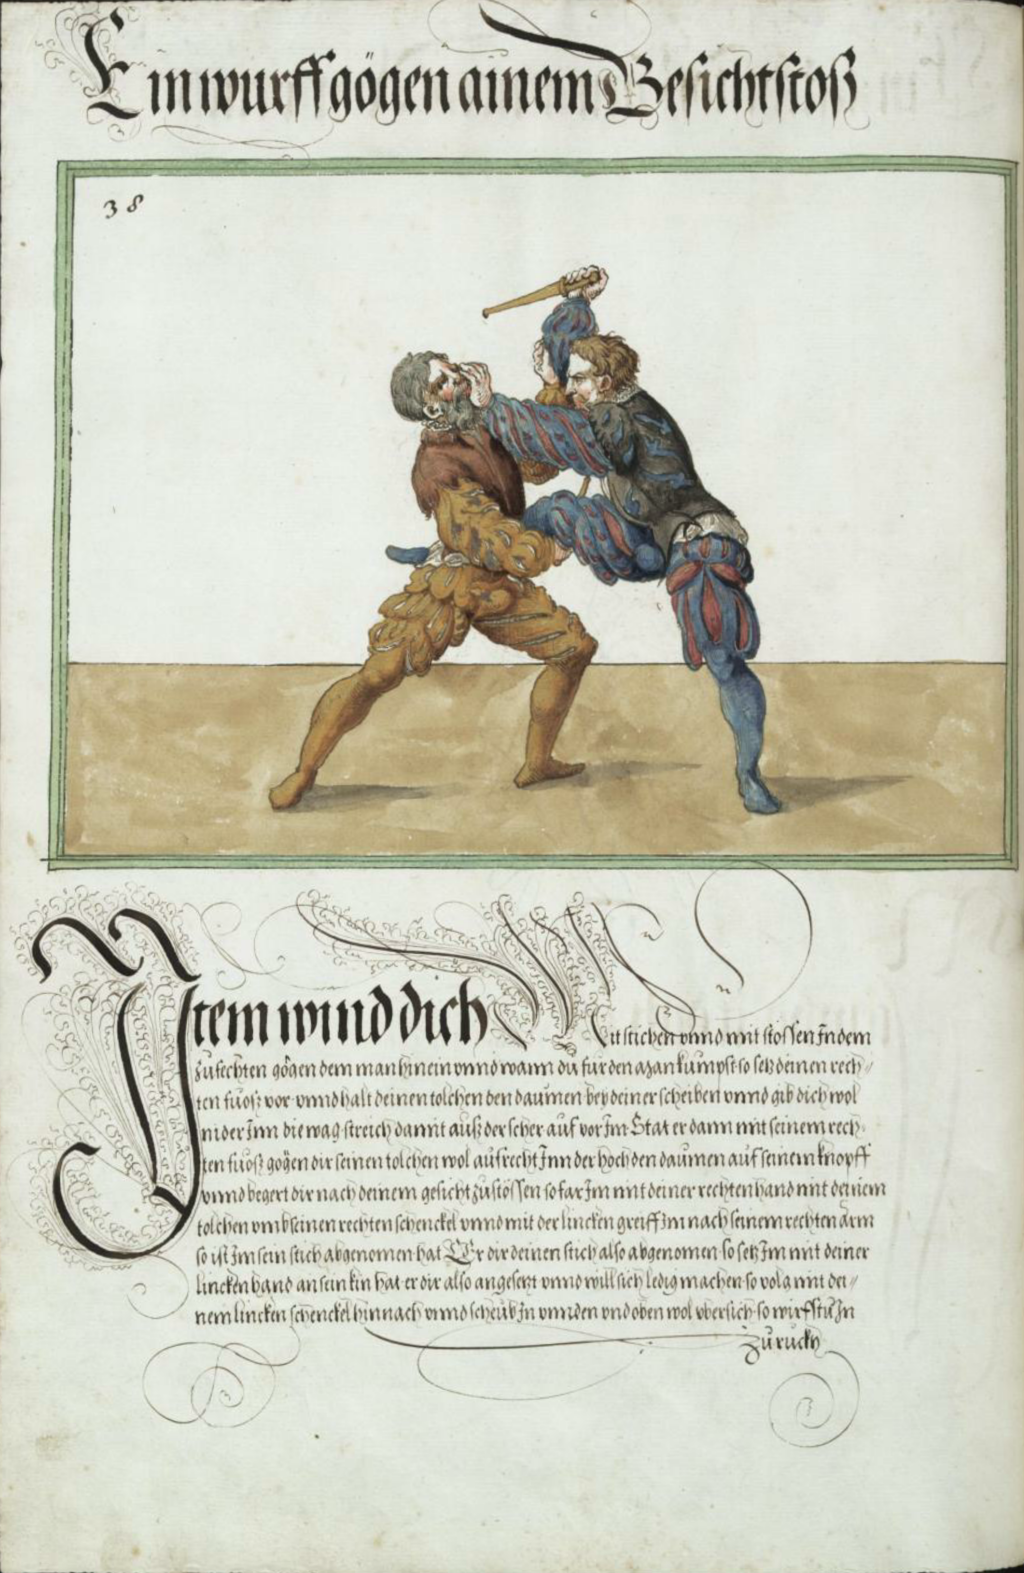 Ein wurff gögen ainem Gesicht stoß
38
Item wind dich Mit stichen vnnd mit stossen Indem
zufechten gögen dem man hinein vnnd wann du für den man kumpst so setz deinen rech-
ten fuoß vor vnnd halt deinen tolchen den daumen bey deiner scheiben vnnd gib dich wol
nider Inn die wag streich damit auß der scher auf vor Im Stat er dann mit seinem rech
ten fuoß gögen dir seinen tolchen wol aufrecht Inn der hoch den daumen auf seinem knopff
vnnd begert dir nach deinem gesicht zustossen so far Im mit deiner rechten hand mit deinem
tolchen vmb seinen rechten schenckel vnnd mit der lincken greiff Im nach seinem rechten arm
so ist Im sein stich abgenomen hat Er dir deinen stich also abgenomen so setz Im mit deiner
lincken hand an sein kin hat er dir also angesetzt vnnd will sich ledig machen so volg mit dei-
nem lincken schenckel hinnach vnnd scheub In vnnden vnd oben wol vbersich so wirfstu In
zuruckh